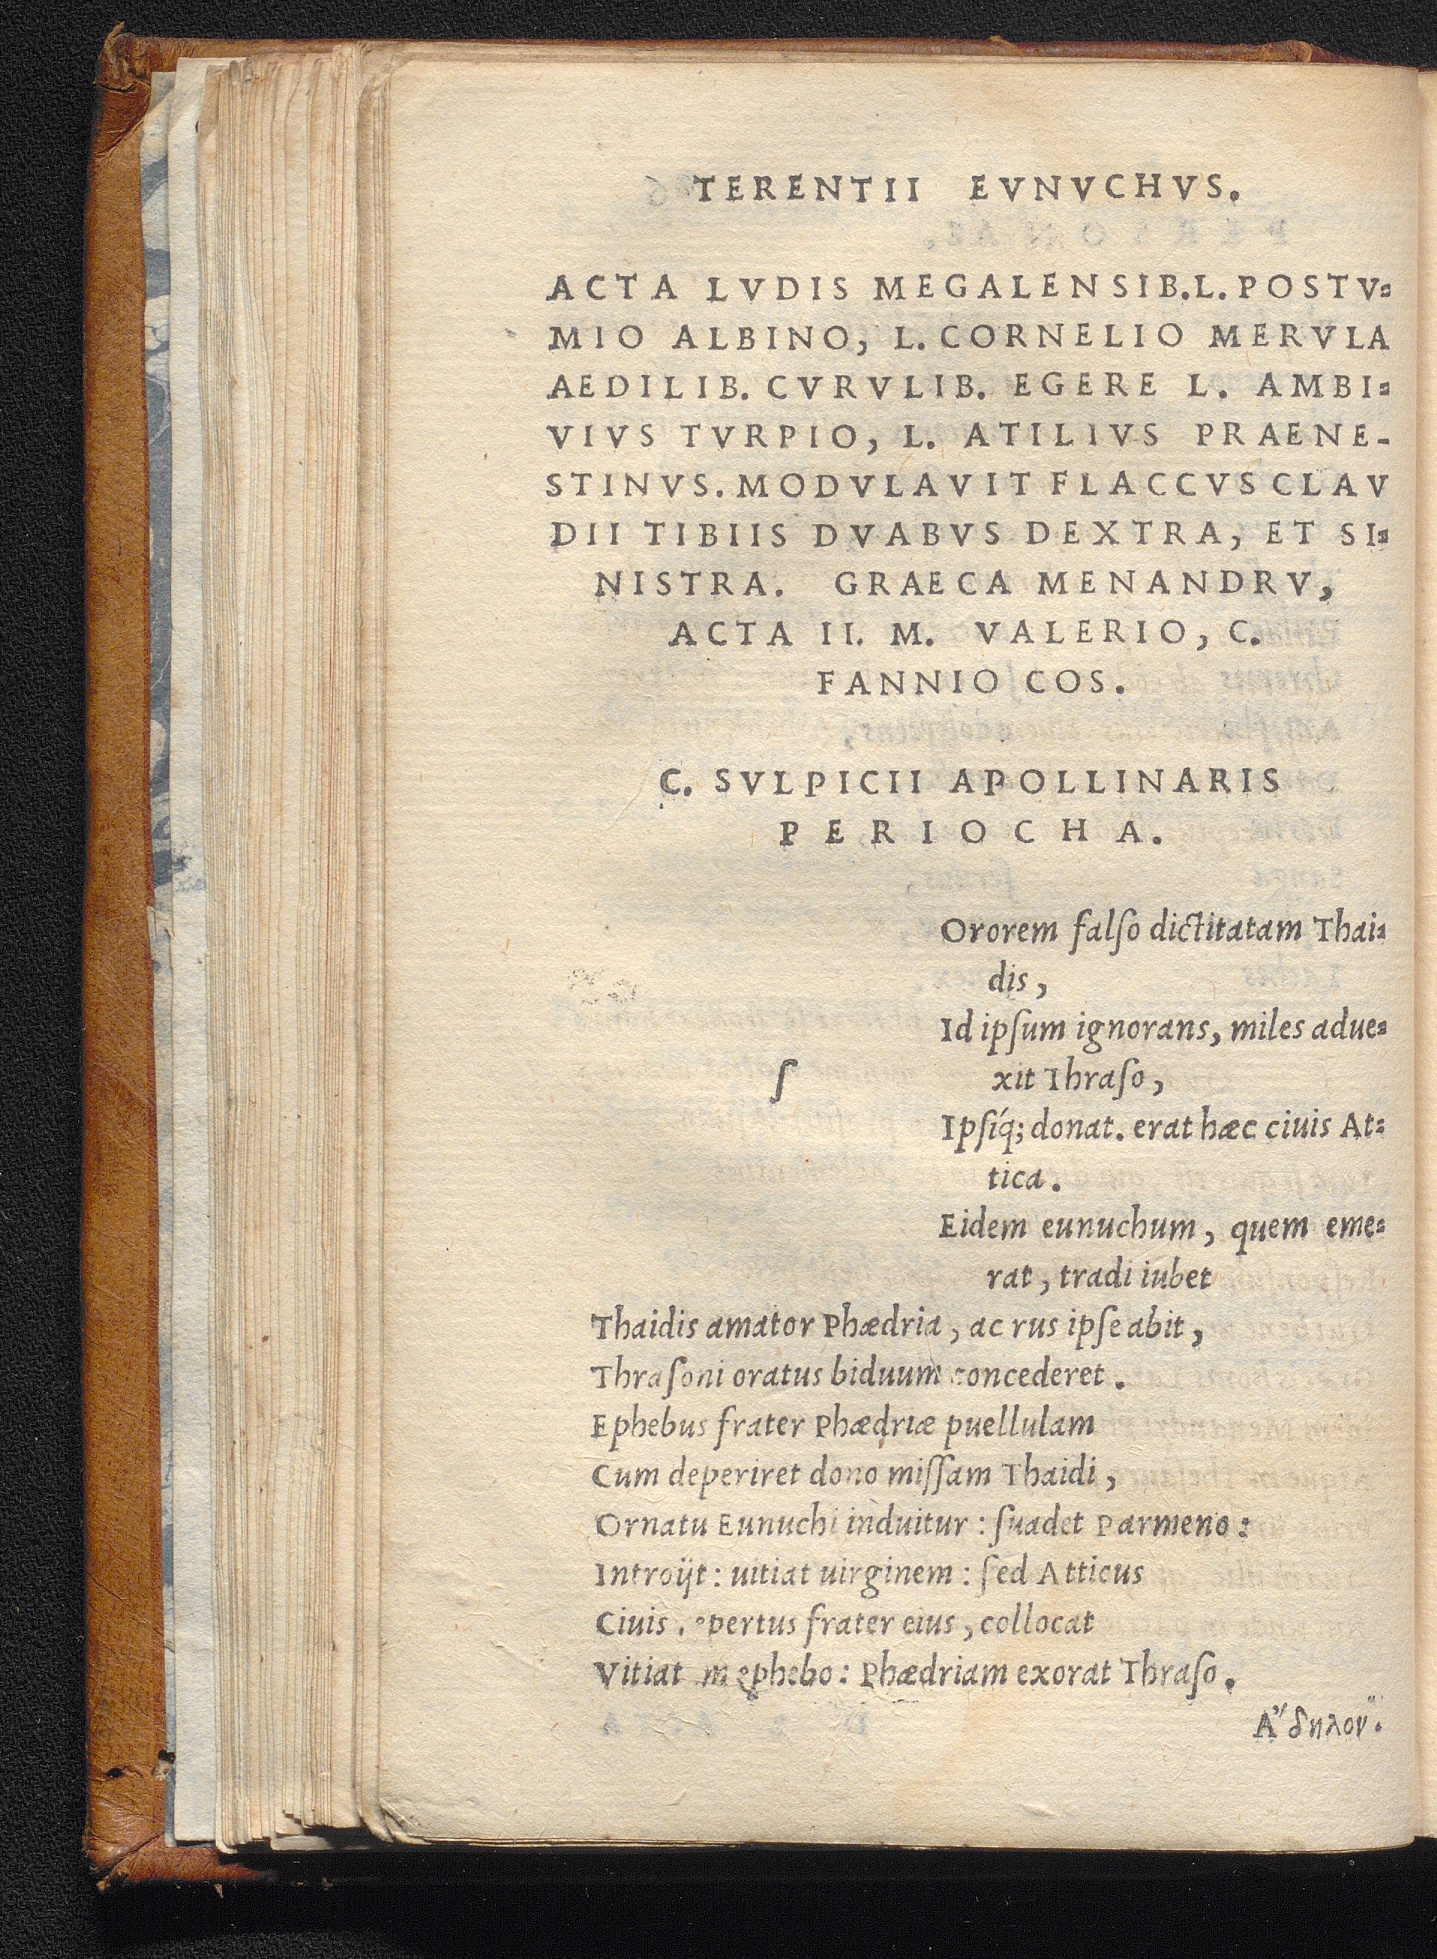 TERENTII EVNVCHVS.
ACTA LVDIS MEGALENSIB. L. POSTV-
MIO ALBINO, L. CORNELIO MERVLA
AEDILIB. CVRVLIB. EGERE L. AMBI-
VIVS TVRPIO, L. ATILIVS PRAENE-
STINVS. MODVLAVIT FLACCVS CLAV
DII TIBIIS DVABVS DEXTRA, ET SI-
NISTRA. GRAECA MENANDRV,
ACTA II. M. VALERIO, C.
FANNIO COS.
C. SVLPICII APOLLINARIS
PERIOCHA.
ſ
Ororem falſo dictitatam Thai-
dis,
Id ipſum ignorans, miles adue-
xit Thraſo,
Ipſíq; donat. erat hæc ciuis At-
tica.
Eidem eunuchum, quem eme-
rat, tradi iubet
Thaidis amator Phædria, ac rus ipſe abit,
Thraſoni oratus biduum concederet.
Ephebus frater Phædriæ puellulam
Cum deperiret dono miſſam Thaidi,
Ornatu Eunuchi induitur: ſuadet Parmeno:
Introijt: uitiat uirginem: ſed Atticus
Ciuis pertus frater eius, collocat
Vitiat m ephebo: Phædriam exorat Thraſo.
Α῎δηλον.